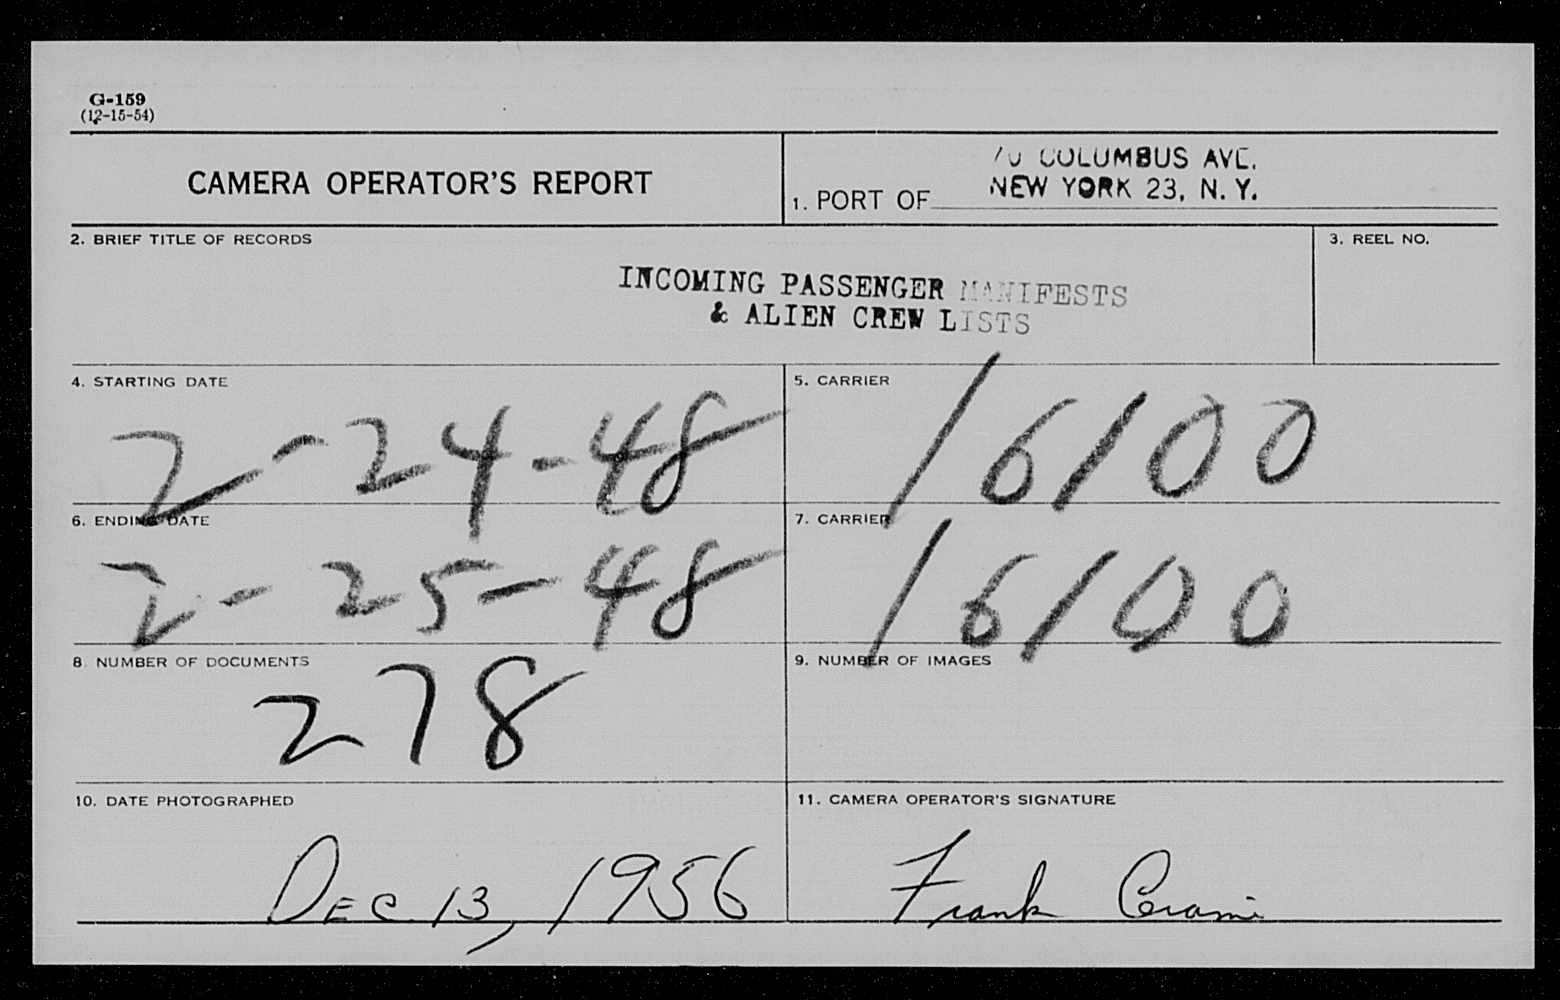 G-159
(12-15-54)
CAMERA OPERATOR'S REPORT
70 COLUMBUS AVE.
1. PORT OF NEW YORK 23, N. Y.
2. BRIEF TITLE OF RECORDS
3. REEL NO.
INCOMING PASSENGER MANIFESTS
& ALIEN CREW LISTS
4. STARTING DATE
5. CARRIER
2-24-48
16100
6. ENDING DATE
7. CARRIER
2-25-48
16100
8. NUMBER OF DOCUMENTS
9. NUMBER OF IMAGES
278
10. DATE PHOTOGRAPHED
11. CAMERA OPERATOR'S SIGNATURE
DEC. 13, 1956
Frank Cerami